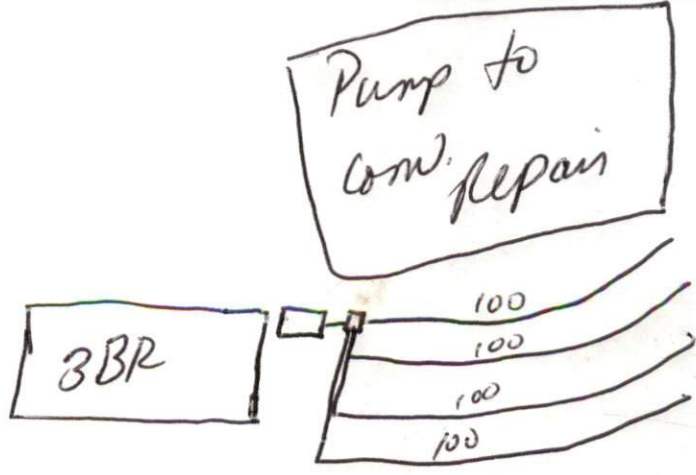 Pump to
conv. Repair
100
3BR
100
100
100